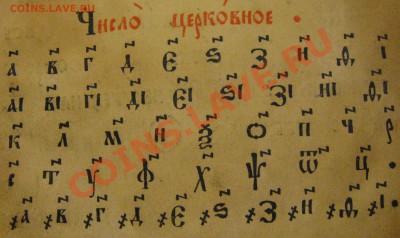 COINS.LAVE.RU
Число̀ церко́вное .
а҃ в҃ г҃ д҃ є҃ ѕ҃ з҃ и҃ ѳ҃ і҃
аі҃ ві҃ гі҃ ді҃ єі҃ ѕі҃ зі҃ иі҃ ѳі҃
к҃ л҃ м҃ н҃ ѯ҃ о҃ п҃ ч҃ р҃
с҃ т҃ у҃ ф҃ х҃ ѱ҃ ѿ҃ ц҃ .
҂а҃ ҂в҃ ҂г҃ ҂д҃ ҂є҃ ҂ѕ҃ ҂з҃ ҂и҃ ҂ѳ҃ ҂і҃ .
COINS.LAVE.RU